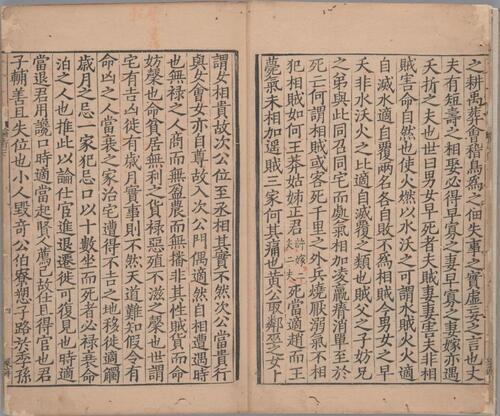 之耕禹葬會稽鳥爲之佃失事之實虚妄之言也丈
夫有短壽之相娶必得早寡之妻早寡之妻嫁亦遇
夭折之夫也世曰男女早死者夫賊妻妻害夫非相
賊害命自然也使火燃以水沃之可謂水賊火火適
自滅水適自覆兩名各自敗不爲相賊今男女之早
夭非水沃火之比適自滅覆之類也賊父之子妨兄
之弟與此同召同宅而處氣相加凌羸瘠消單至於
死亡何謂相賊或客死千里之外兵燒厭溺氣不相
犯相賊如何王莽姑姊正君許嫁二夫二夫死當適趙而王
薨氣未相加遥賊三家何其痛也黄公取鄰巫之女卜
謂女相貴故次公位至丞相其實不然次公當貴行
與女會女亦自尊故入次公門偶適然自相遭遇時
也無禄之人商而無盈農而無播非其性賊貨而命
妨糓也命貧居無利之貨禄惡殖不滋之糓也世謂
宅有吉凶徙有歳月實事則不然天道難知假令有
命凶之人當衰之家治宅遭得不吉之地移徙適觸
歳月之忌一家犯忌口以十數坐而死者必禄衰命
泊之人也推此以論仕宦進退遷徙可復見也時適
當退君用讒口時適當起賢人薦己故仕且得官也君
子輔善且失位也小人毁奇公伯寮愬子路於季孫